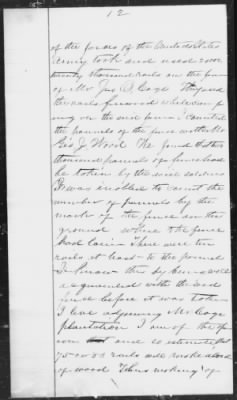 12
of the forces of the United States
Army took and used some
twenty thousand rails on the farm
of Mr Jas S. Cage. They used
the rails for wood while
on the said farm. I counted
the pannels of the fence with Mr
Geo J. Wood. We found
thousand pannels of fence had
been taken by the said soldiers
I was enabled to count the
number of pannels by the
mark of the fence on the
ground where the fence
had lain. There were ten
rails at least to the pannel
I know this by being well
acquainted with the said
fence before it was taken
I live adjoining Mr Cage
plantation I am of the opinion
and estimate that
75 or 80 rails will make a cord
of wood Thus making of